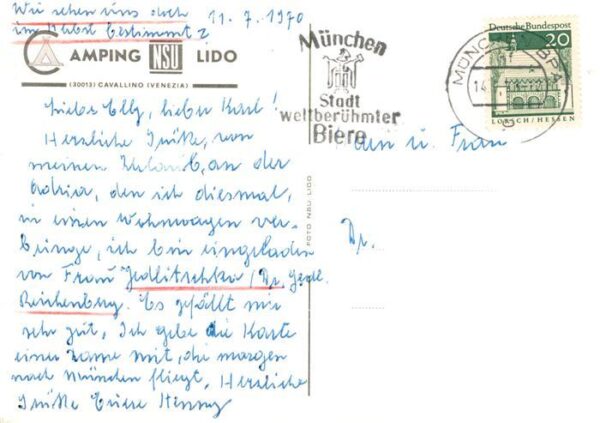 Wir sehen uns doch
im Herbst bestimmt?
11.7.1970
CAMPING NSU LIDO
(30013) CAVALLINO (VENEZIA)
Liebe Elly, lieber Karl!
Herzliche Grüße, von
meinen Urlaub, an der
Adria, den ich diesmal,
in einen Wohnwagen ver-
bringe, ich bin eingeladen
von Frau Jedlitschka/Dr. Gedl.
Reichenberg. Es gefällt mir
sehr gut, Ich gebe die Karte
einer Dame mit, die morgen
nach München fliegt, Herzliche
Grüße Euere Henny
FOTO NSU LIDO
München
Stadt
weltberühmter
Biere
MÜNCHEN BPA
Deutsche Bundespost
20
LORSCH/HESSEN
u. Frau
Dr.